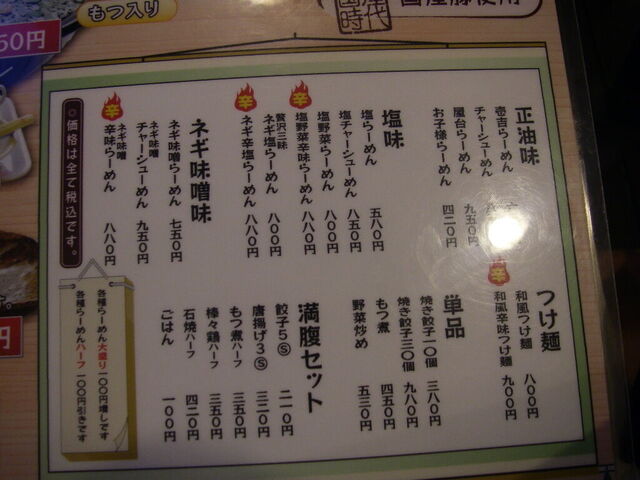 もつ入り
50円
国産豚使用
正油味
壱吉らーめん
チャーシューめん 九五〇円
屋台らーめん
お子様らーめん 四二〇円
塩味
塩らーめん 五八〇円
塩チャーシューめん 八五〇円
塩野菜らーめん 八〇〇円
辛 塩野菜辛味らーめん 八八〇円
贅沢三昧
ネギ塩らーめん 八〇〇円
辛 ネギ辛塩らーめん 八八〇円
ネギ味噌味
ネギ味噌らーめん 七五〇円
ネギ味噌
チャーシューめん 九五〇円
辛 ネギ味噌
辛味らーめん 八八〇円
○価格は全て税込です。
つけ麺
和風つけ麺 八〇〇円
辛 和風辛味つけ麺 九〇〇円
単品
焼き餃子一〇個 三八〇円
焼き餃子三〇個 九八〇円
もつ煮 四五〇円
野菜炒め 五三〇円
満腹セット
餃子5Ⓢ 二一〇円
唐揚げ3Ⓢ 三二〇円
もつ煮ハーフ 三五〇円
棒々鶏ハーフ 三五〇円
石焼ハーフ 四二〇円
ごはん 一〇〇円
各種らーめん大盛り一〇〇円増しです
各種らーめんハーフ一〇〇円引きです
円